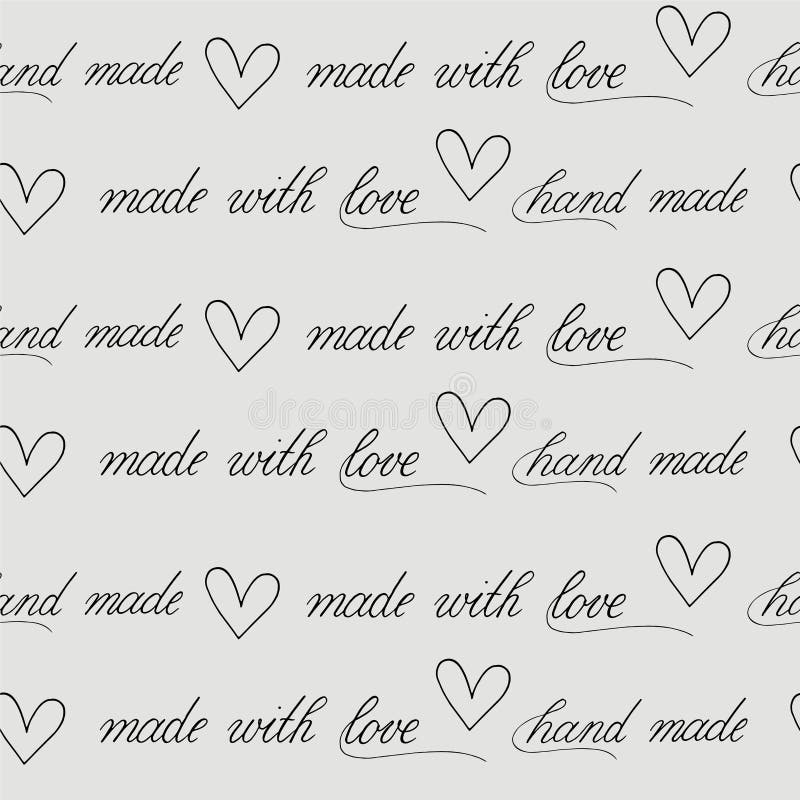 and made made with love ha
made with love hand made
and made made with love ha
dreamstime
made with love hand made
and made made with love ha
made with love hand made